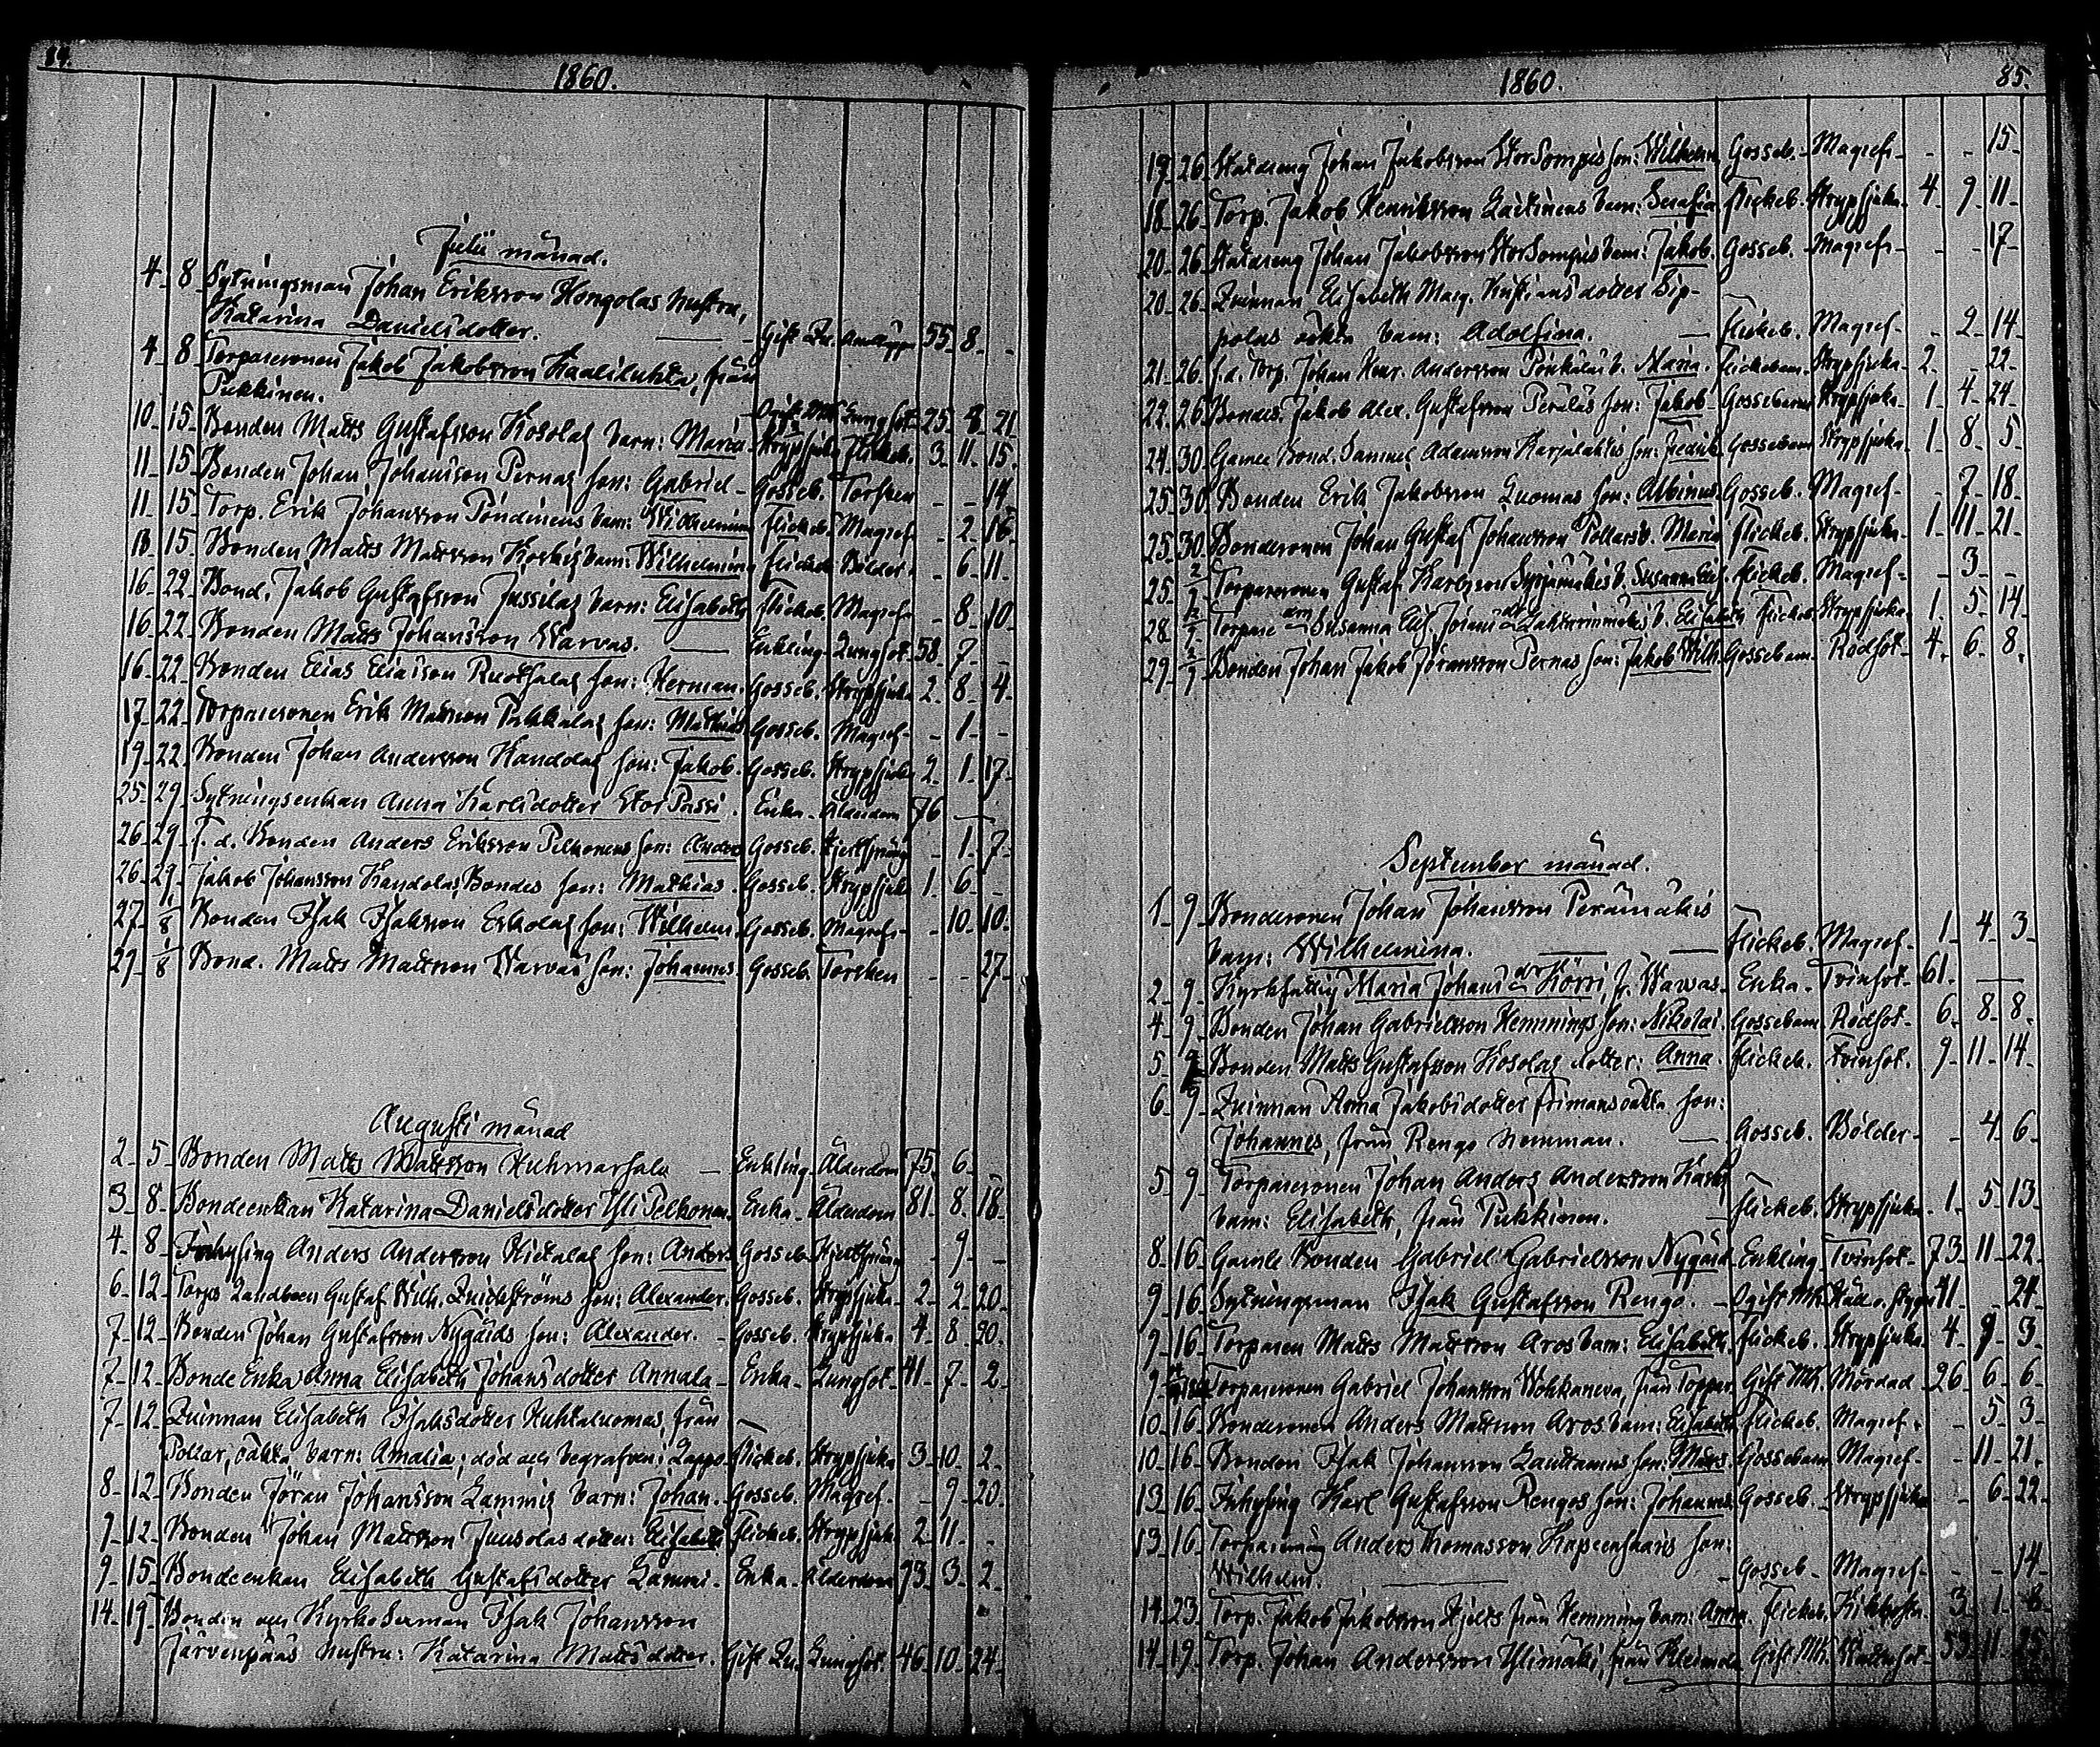 84.
1860.
Julii månad.
4 8 Sytningsman Johan Eriksson Hongolas hustru,
Katarina Danielsdotter. Gift Qv. 55 8 -
4 8 Torparesonen Jakob Jakobsson Kaaliluhta, från
Pukkinen. Ogift Mk. Lungsot 25 21
10 15 Bonden Matts Gustafsson Kosolas barn: Maria Strypsjuka Flickeb. 3 11 15
11 15 Bonden Johan Johansson Pernas son: Gabriel Gosseb. Torsken - - 14
11 15 Torp. Erik Johansson barn: Wilhelmina Flickeb. Magref - 2 16
13 15 Bonden Matts Mattsson barn: Wilhelmina Flickeb. Bölder - 6 11
16 22 Bond. Jakob Gustafsson Jussilas barn: Elisabeth Flickeb. Magref - 8 10
16 22 Bonden Matts Johansson Warvas. Enkling Lungsot 58 7 -
16 22 Bonden Elias Eliasson Ruotsalas son: Herman Gosseb. Strypsjuka 2 8 4
17 22 Torparesonen Erik Matsson Pukkalas son: Mathias Gosseb. Magref - 1 -
19 22 Bonden Johan Andersson Kandolas son: Jakob Gosseb. Strypsjuka 2 1 17
25 29 Sytningsenkan Anna Karlsdotter Stor Passi. Enka Ålderdom 76 -
26 29 f. d. Bonden Anders Eriksson Pelkonens son: Anders Gosseb. Hjertsprång - 1 7
26 29 Jakob Johansson Kandolas, Bondes son: Mathias Gosseb. Strypsjuka 1 6 -
27 1/8 Bonden Isak Isaksson Eskolas son: Wilhelm Gosseb. Magref - 10 10
29 1/8 Bond. Matts Mattsson Warvas son: Johannes Gosseb. Torsken - - 27
Augusti månad
2 5 Bonden Matts Mattsson Kuhmarsala Enkling Ålderdom 75 6 -
3 8 Bondeenkan Katarina Danielsdotter Yli Pelkonen Enka Ålderdom 81 8 18
4 8 Inhysing Anders Andersson Hietalas son: Anders Gosseb. Hjertsprång - 9 -
6 12 Torps Landboen Gustaf Wilh. Qvickströms son: Alexander Gosseb. Strypsjuka 2 2 20
7 12 Bonden Johan Gustafsson Nygårds son: Alexander. Gosseb. Strypsjuka 4 8 20
7 12 Bonde Enka Anna Elisabeth Johansdotter Annala Enka Lungsot 41 7 2
7 12 Qvinnan Elisabeth Isaksdotter Kuhtaluomas, från
Pollar, oäkta barn: Amalia, död och begrafven i Lappo Flickeb. Strypsjuka 3 10 2
8 12 Bonden Jöran Johansson Lammis barn: Johan. Gosseb. Magref. - 9 20
9 12 Bonden Johan Mattsson Juusolas dotter: Elisabeth Flickeb. Strypsjuka 2 11 -
9 15 Bondeenkan Elisabeth Gustafsdotter Lammi Enka Ålderdom 73 3 2
14 19 Bonden och Kyrko Sexman Isak Johansson
Järvenpääs hustru: Katarina Mattsdotter. Gift Qv. Lungsot 46 10 24
1860.
85.
19 26 Statdreng Johan Jakobsson StorSompis son: Wilhelm Gosseb. Magref - - 15
18 26 Torp. Jakob Henriksson Laitinens barn: Serafia Flickeb. Strypsjuka 4 9 11
20 26 Statdreng Johan Jakobsson StorSompis barn: Jakob. Gosseb. Magref - - 17
20 26 Qvinnan Elisabeth Marg. Kustiansdotter Sip-
polas oäkta barn: Adolfina. Flickeb. Magref - 2 14
21 26 f. d. Torp. Johan Henr. Andersson b. Maria. Flickebarn Strypsjuka 2 - 22
22 26 Bondes. Jakob Alex. Gustafsson Peräläs son: Jakob Gossebarn Strypsjuka 1 4 24
24 30 Gamle Bond. Samuel Adamsson Karjalahtis son: Fredrik Gossebarn Strypsjuka 1 8 5
25 30 Bonden Erik Jakobsson Luomas son: Albinus Gosseb. Magref - 7 18
25 30 Bondesonen Johan Gustaf Johansson Pollars b. Maria Flickeb. Strypsjuka 1 11 21
25 2/9 Torparesonen Gustaf Karlsson Syrjämäkis b. Susanna Flickeb. Magref - 3 -
28 2/9 Torpare Susanna Elis. b. Elisabeth Flickeb. Strypsjuka 1 5 14
29 2/9 Bonden Johan Jakob Jöransson Pernas son: Jakob Wilh. Gossebarn Rödsot 4 6 8
September månad.
1 9 Bondesonen Johan Johansson Perämäkis
barn: Wilhelmina. Flickeb. Magref 1 4 3
2 9 Kyrkfattig Maria Johansdr Körri, fr. Warvas Enka Tvinsot 61 -
4 9 Bonden Johan Gabrielsson Hemmings son: Nikolai Gossebarn Rödsot 6 8 8
5 9 Bonden Matts Gustafsson Kosolas dotter: Anna. Flickeb. Tvinsot 9 11 14
6 9 Qvinnan Anna Jakobsdotter Frimans oäkta son:
Johannes, från Rengo hemman. Gosseb. Bölder - 4 6
5 9 Torparesonen Johan Anders Andersson
barn: Elisabeth, från Pukkinen. Flickeb. Strypsjuka 1 5 13
8 16 Gamle Bonden Gabriel Gabrielsson Nygård Enkling Tvinsot 73 11 22
9 16 Sytningsman Isak Gustafsson Rengo. Ogift Mk. 41 - 24
9 16 Torparen Matts Mattsson Aros barn: Elisabeth Flickeb. Strypsjuka 4 9 3
9 Torparesonen Gabriel Johansson Wohkaneva, från Toppar Gift Mk. Mördad 26 6 6
10 16 Bondesonen Anders Mattsson Aros barn: Elisabeth Flickeb. Magref - 5 3
10 16 Bonden Isak Johansson Lautamus son: Matts Gossebarn Magref - 11 21
13 16 Inhysing Karl Gustafsson Rengos son: Johannes Gosseb. Strypsjuka - 6 22
13 16 Anders Thomasson son:
Wilhelm. Gosseb. Magref - - 14
14 23 Torp. Jakob Jakobsson Hjelts från Hemming barn: Anna. Flickeb. Kikhosta 3 1 8
14 19 Torp. Johan Andersson Ylimäki, från Kleimola Gift Mk. Vattusot 53 11 25